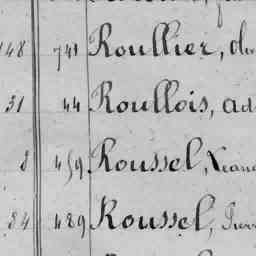 148 741 Roullier,
31 44 Roullois, Ad
8 459 Roussel,
84 489 Roussel,